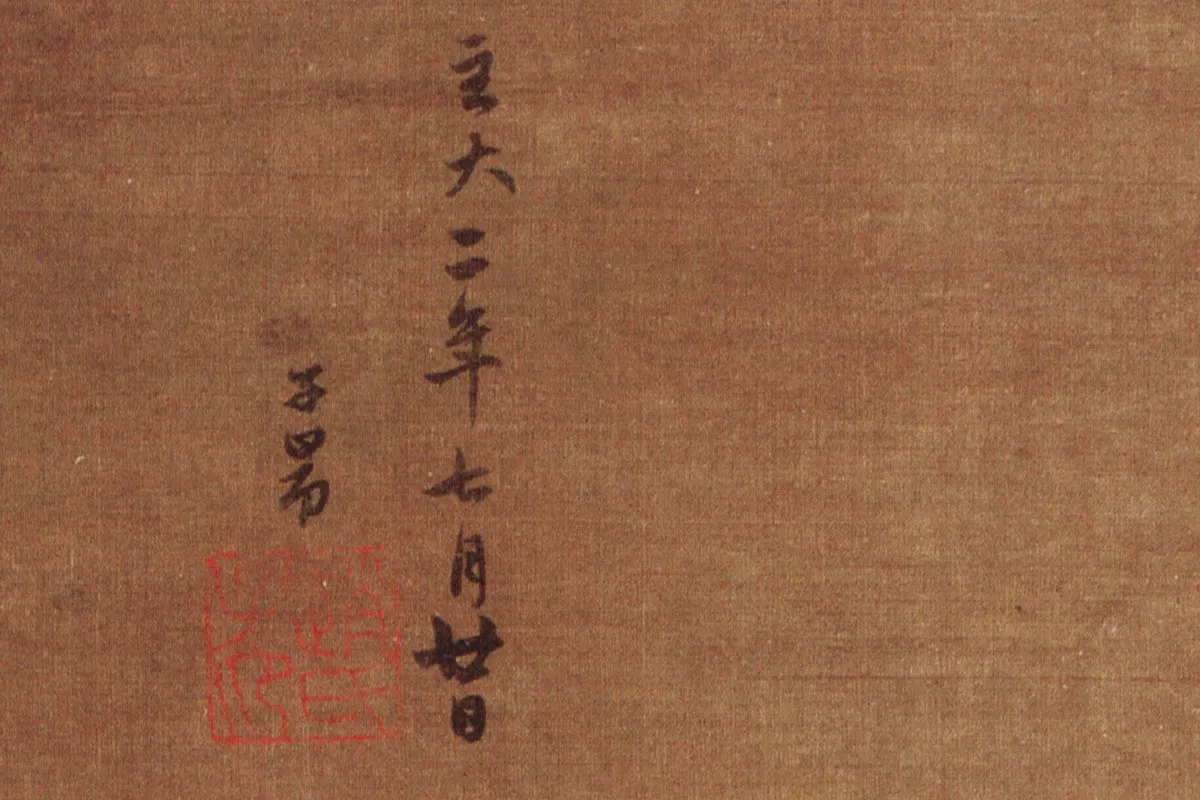 至大二年七月廿日
子昂